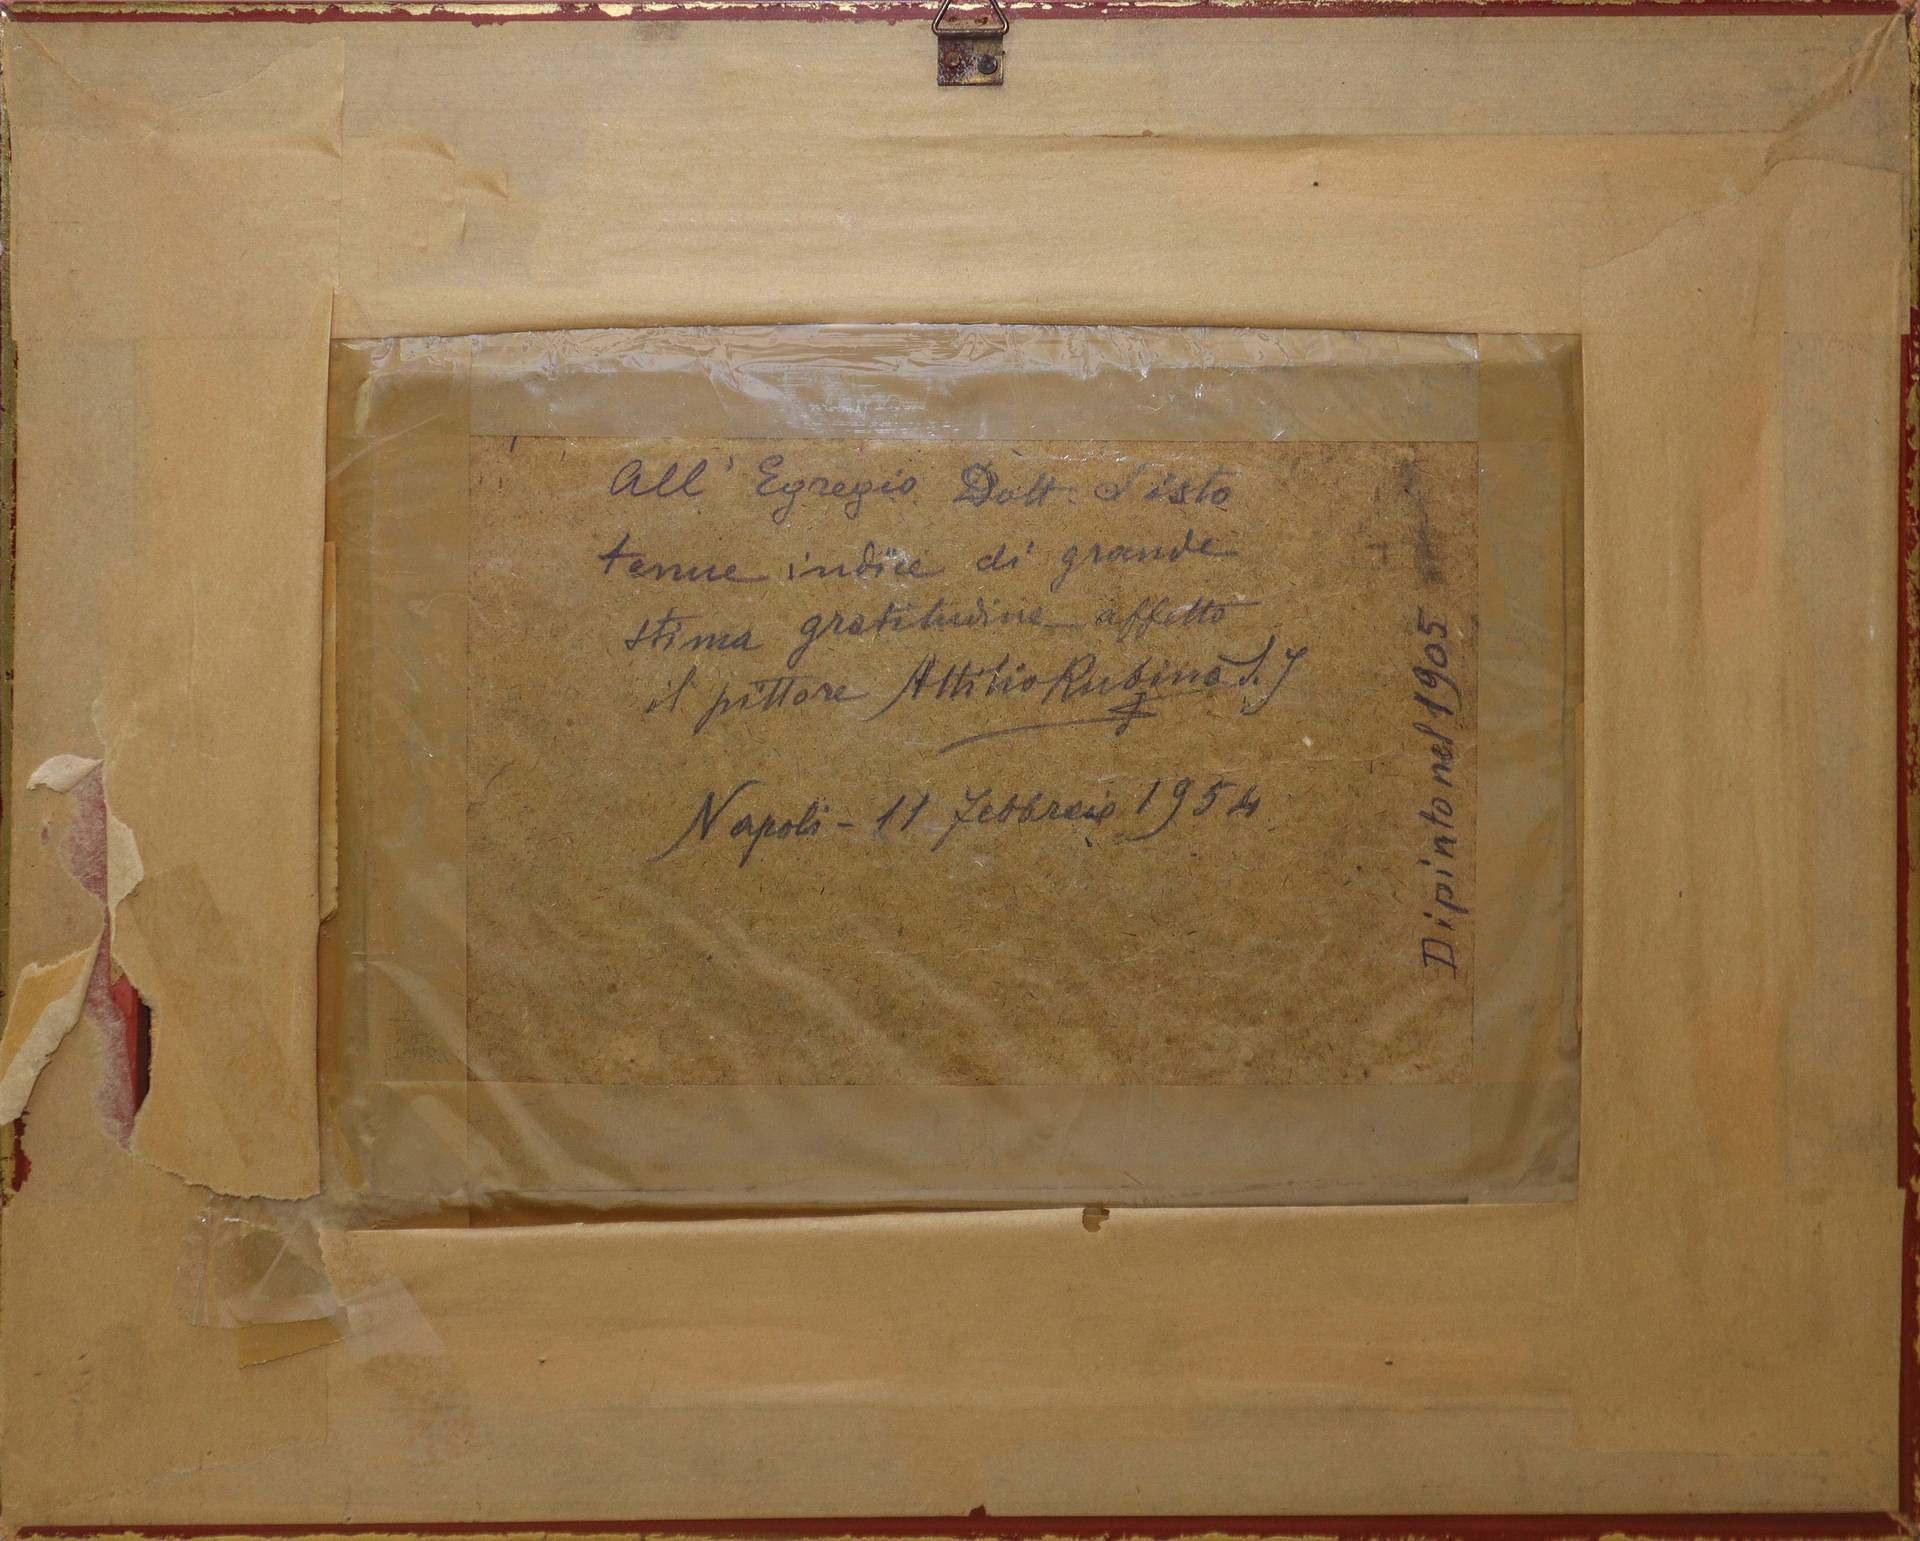 All' Egregio Dott. Sisto
tenue indice di grande
stima gratitudine affetto
il pittore Attilio Rubino S.J
Napoli - 11 Febbraio 1954
Dipinto nel 1905